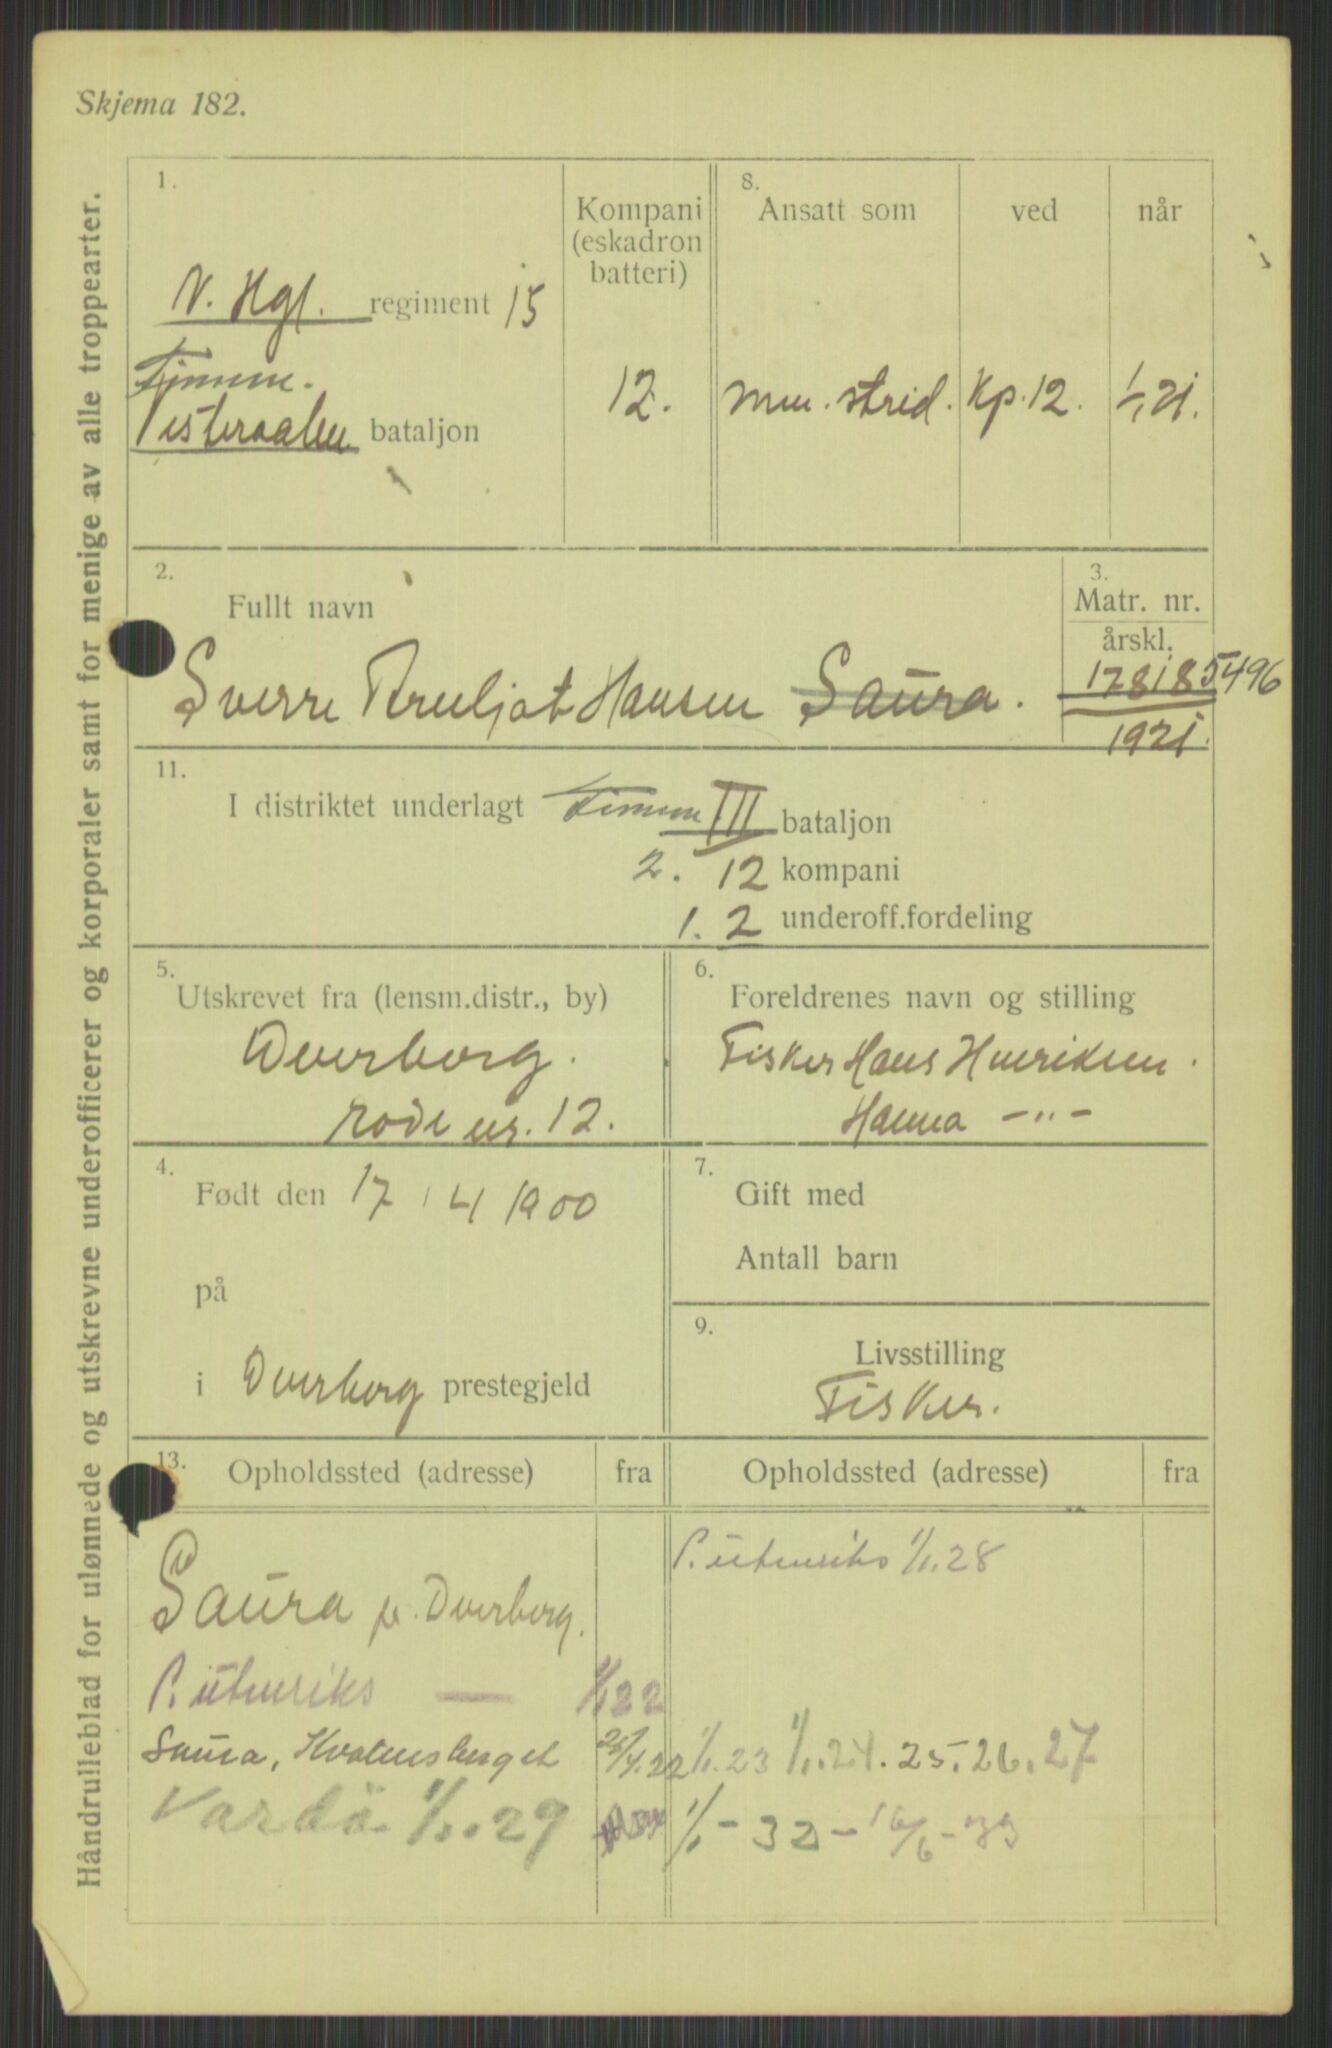 Skjema 182.
Håndrulleblad for ulønnede og utskrevne underofficerer og korporaler samt for menige av alle troppearter.
1.
Kompani
(eskadron
batteri)
8.
Ansatt som
ved
når
N. Hgl. regiment 15
Vesteraalen bataljon
12.
Men. strid.
Kp. 12.
1/1 21.
2.
Fullt navn
3.
Matr. nr.
årskl.
Sverre Hansen Saura.
5496
1921.
11.
I distriktet underlagt III bataljon
2. 12 kompani
1. 2 underoff.fordeling
5.
Utskrevet fra (lensm.distr., by)
Dverberg.
rode nr. 12.
6.
Foreldrenes navn og stilling
Fisker Hans Henriksen.
Hanna —„—
4.
Født den 17 / 4 1900
på
i Dverberg prestegjeld
7.
Gift med
Antall barn
9.
Livsstilling
Fisker.
13.
Opholdssted (adresse)
fra
Opholdssted (adresse)
fra
Saura p. Dverberg.
P. utenriks 1/1.28
P. utenriks — 1/1 22
Saura, 1/1.23 1/1.24. 25. 26. 27
Vardø 1/1.29
1/1 - 32 - 16/6 - 33